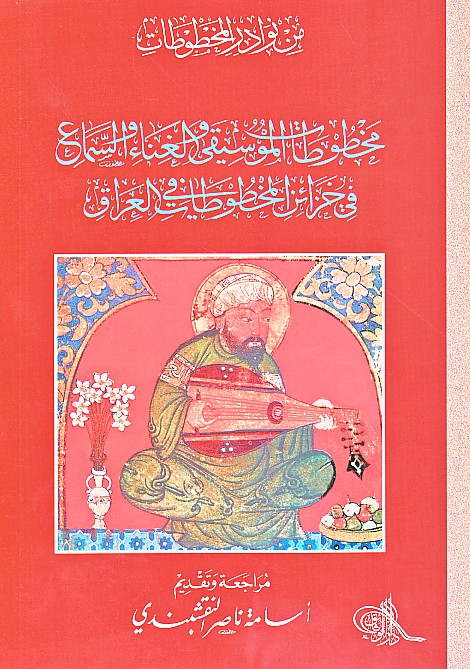 من نوادر المخطوطات
مخطوطات الموسيقى والغناء والسماع
في خزائن المخطوطات في العراق
مراجعة وتقديم
أسامة ناصر النقشبندي